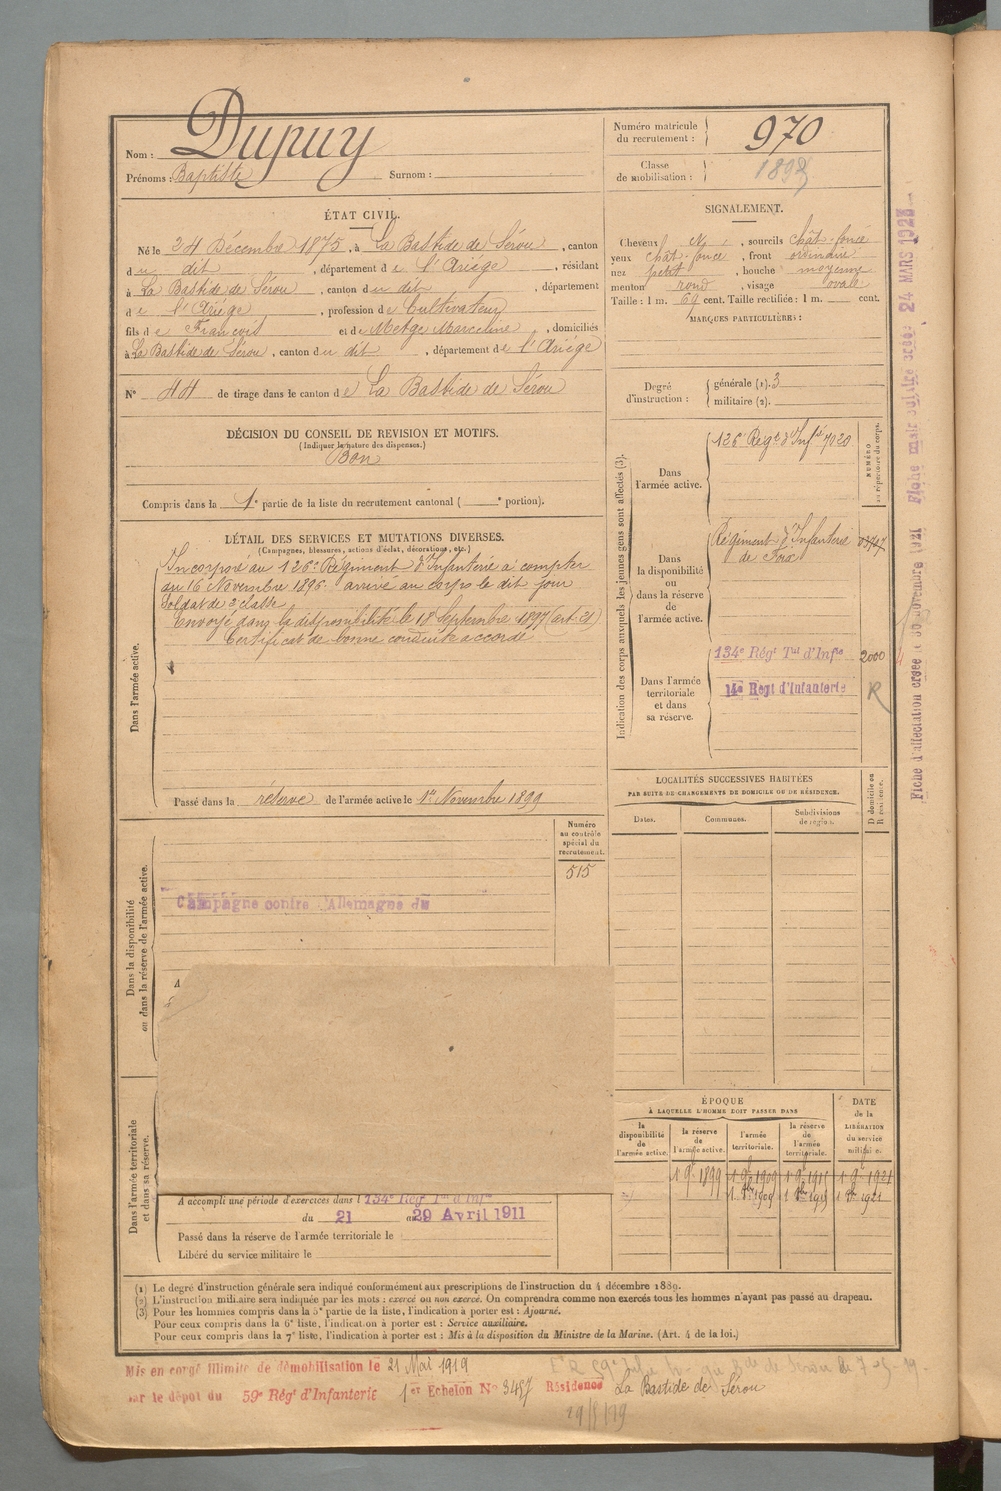 Nom : Dupuy
Prénoms : Baptiste Surnom :
Numéro matricule
du recrutement : 970
Classe
de mobilisation : 1895
ÉTAT CIVIL.
Né le 24 Décembre 1875, à La Bastide de Sérou, canton
du dit, département de l'Ariège, résidant
à La Bastide de Sérou, canton du dit, département
de l'Ariège, profession de Cultivateur
fils de François et de Metge Marceline, domiciliés
à La Bastide de Sérou, canton du dit, département de l'Ariège
N° 44 de tirage dans le canton de La Bastide de Sérou
DÉCISION DU CONSEIL DE REVISION ET MOTIFS.
(Indiquer la nature des dispenses.)
Bon
Compris dans la 1e partie de la liste du recrutement cantonal ( e portion).
SIGNALEMENT.
Cheveux N, sourcils chât-foncé
yeux chât-foncé, front ordinaire
nez petit, bouche moyenne
menton rond, visage ovale
Taille : 1 m. 69 cent. Taille rectifiée : 1 m. cent.
MARQUES PARTICULIÈRES :
Degré
d'instruction :
générale (1). 3
militaire (2).
DÉTAIL DES SERVICES ET MUTATIONS DIVERSES.
(Campagnes, blessures, actions d'éclat, décorations, etc.)
Dans l'armée active.
Incorporé au 126e Régiment d'Infanterie à compter
du 16 Novembre 1896. arrivé au corps le dit jour
Soldat de 2e classe
Envoyé dans la disponibilité le 18 Septembre 1897 (art. 21)
Certificat de bonne conduite accordé
Passé dans la réserve de l'armée active le 1er Novembre 1899
Indication des corps auxquels les jeunes gens sont affectés (3).
NUMÉRO
au répertoire du corps.
Dans
l'armée active.
126e Régt d'Infie 7020
Dans
la disponibilité
ou
dans la réserve
de
l'armée active.
Régiment d'Infanterie
de Foix
Dans l'armée
territoriale
et dans
sa réserve.
134e Régt Tal d'Infie 2000
14e Regt d'Infanterie R
LOCALITÉS SUCCESSIVES HABITÉES
PAR SUITE DE CHANGEMENTS DE DOMICILE OU DE RÉSIDENCE.
D domicile ou
R résidence.
Dates.
Communes.
Subdivisions
de région.
Dans la disponibilité
ou dans la réserve de l'armée active.
Numéro
au contrôle
spécial du
recrutement.
515
Campagne contre l'Allemagne du
A
Dans l'armée territoriale
et dans sa réserve.
A accompli une période d'exercices dans l 134e Rég Tal d'Infie
du 21 au 29 Avril 1911
Passé dans la réserve de l'armée territoriale le
Libéré du service militaire le
ÉPOQUE
À LAQUELLE L'HOMME DOIT PASSER DANS
la
disponibilité
de
l'armée active.
la réserve
de
l'armée active.
l'armée
territoriale.
la réserve
de
l'armée
territoriale.
DATE
de la
LIBÉRATION
du service
militaire.
1 9b 1899 1 9b 1909 1 9b 1915 1 9b 1921
(1) Le degré d'instruction générale sera indiqué conformément aux prescriptions de l'instruction du 4 décembre 1889.
(2) L'instruction militaire sera indiquée par les mots : exercé ou non exercé. On comprendra comme non exercés tous les hommes n'ayant pas passé au drapeau.
(3) Pour les hommes compris dans la 5e partie de la liste, l'indication à porter est : Ajourné.
Pour ceux compris dans la 6e liste, l'indication à porter est : Service auxiliaire.
Pour ceux compris dans la 7e liste, l'indication à porter est : Mis à la disposition du Ministre de la Marine. (Art. 4 de la loi.)
Mis en congé illimité de démobilisation le 21 Mai 1919
par le dépôt du 59e Régt d'Infanterie 1er Echelon N° 3457 Résidence La Bastide de Sérou
Fiche d'affectation créée le 30 novembre 1921 Fiche matr aulaire créée 24 MARS 1923